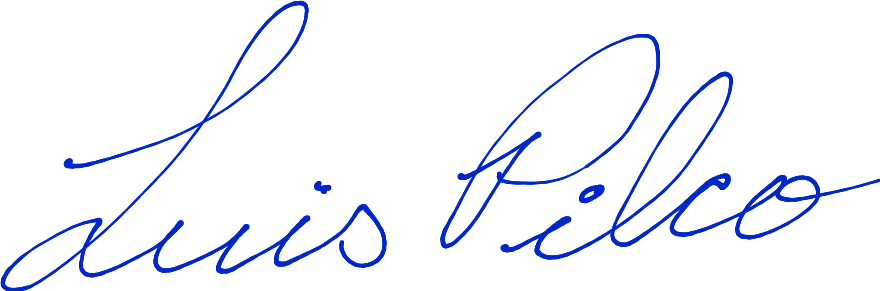 Luis Pilco